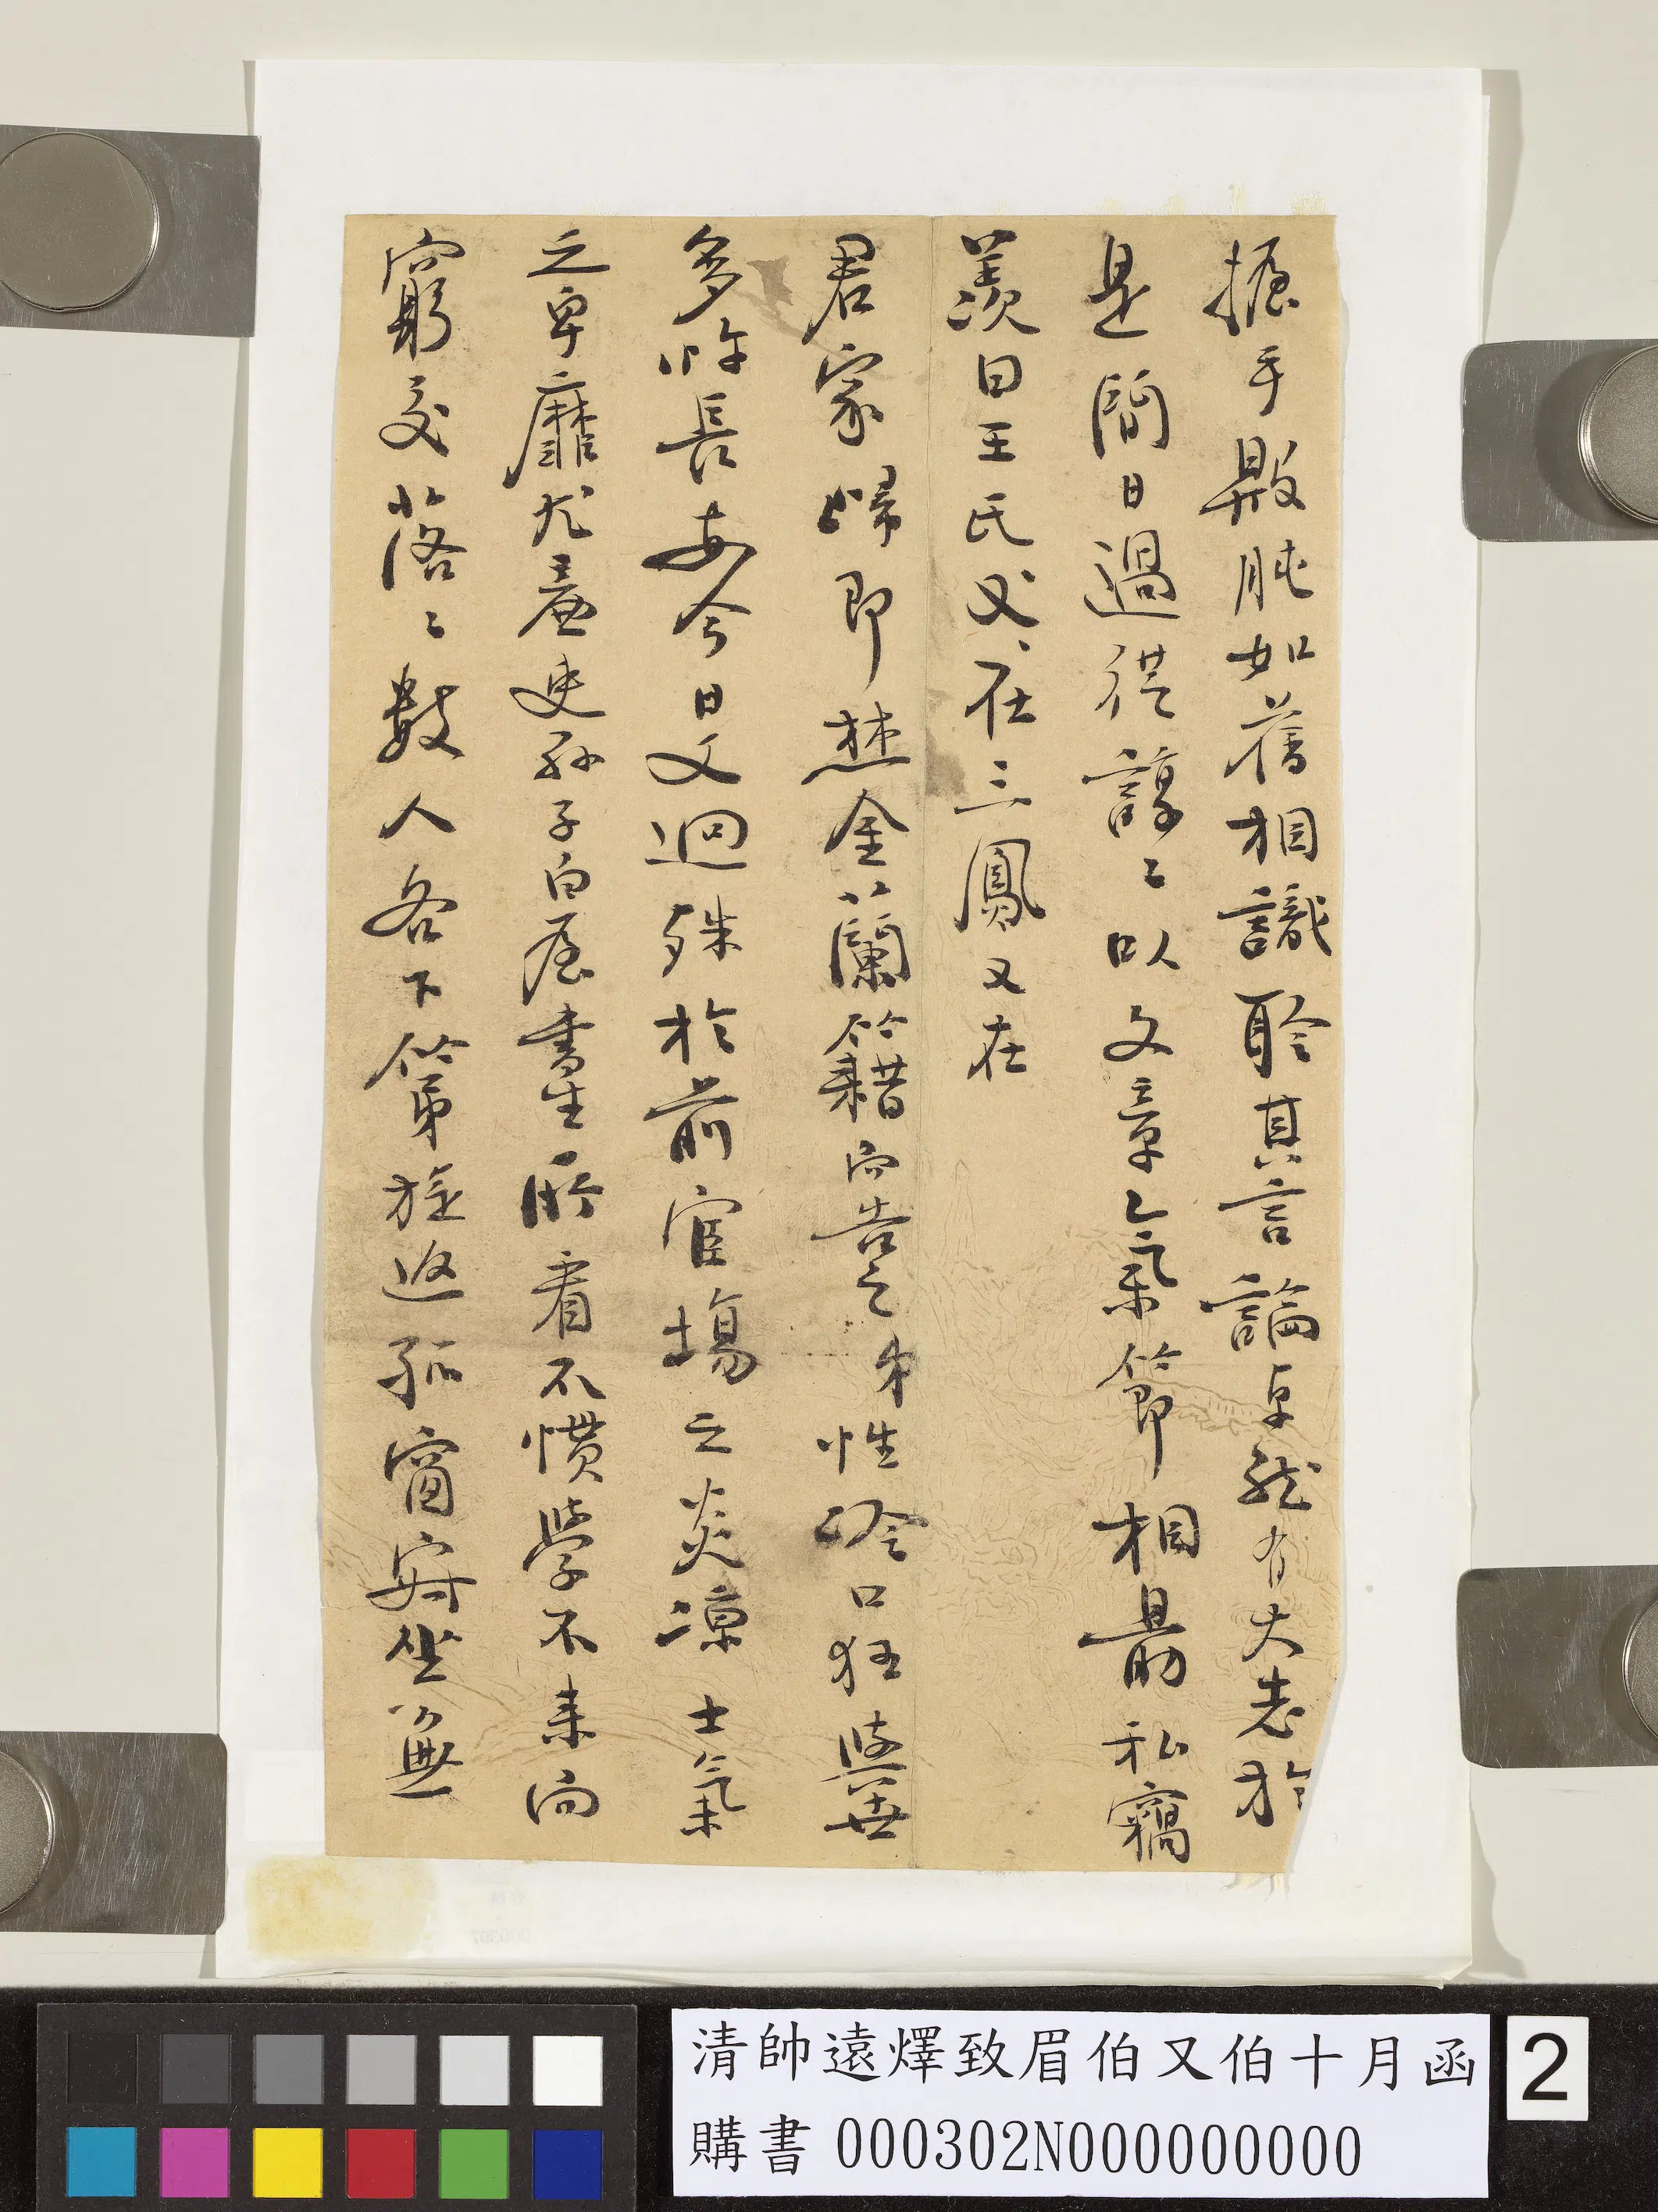 握手歎肫如舊相識聆其言論卓然有大志於
是間日過從諄〻以文章氣節相勗私竊
羨曰王氏父在三鳳又在
君家歸即焚金蘭籍而告之弟性冷口狂與世
多忤長安今日又迥殊於前宦場之炎涼士氣
之卑靡尤蓋吏孫子白屋書生所看不慣學不來向
窮交落〻數人各下第旋返孤窗穽坐無
清帥遠燡致眉伯又伯十月函
購書 000302N000000000
2